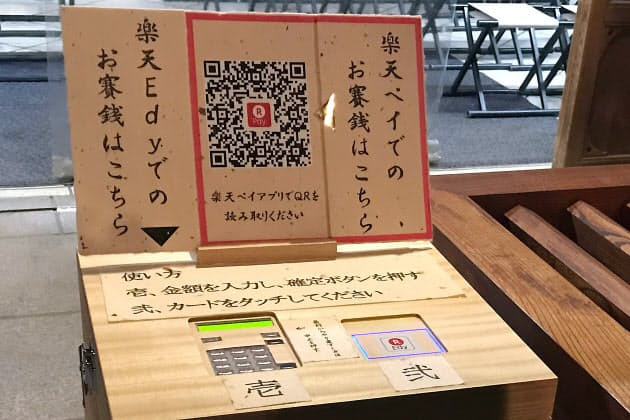 楽天ペイでの
お賽銭はこちら
R
Pay
楽天ペイアプリでQRを
読み取りください
楽天Edyでの
お賽銭はこちら
使い方
壱、金額を入力し、確定ボタンを押す
弐、カードをタッチしてください
壱
R
Pay
弐